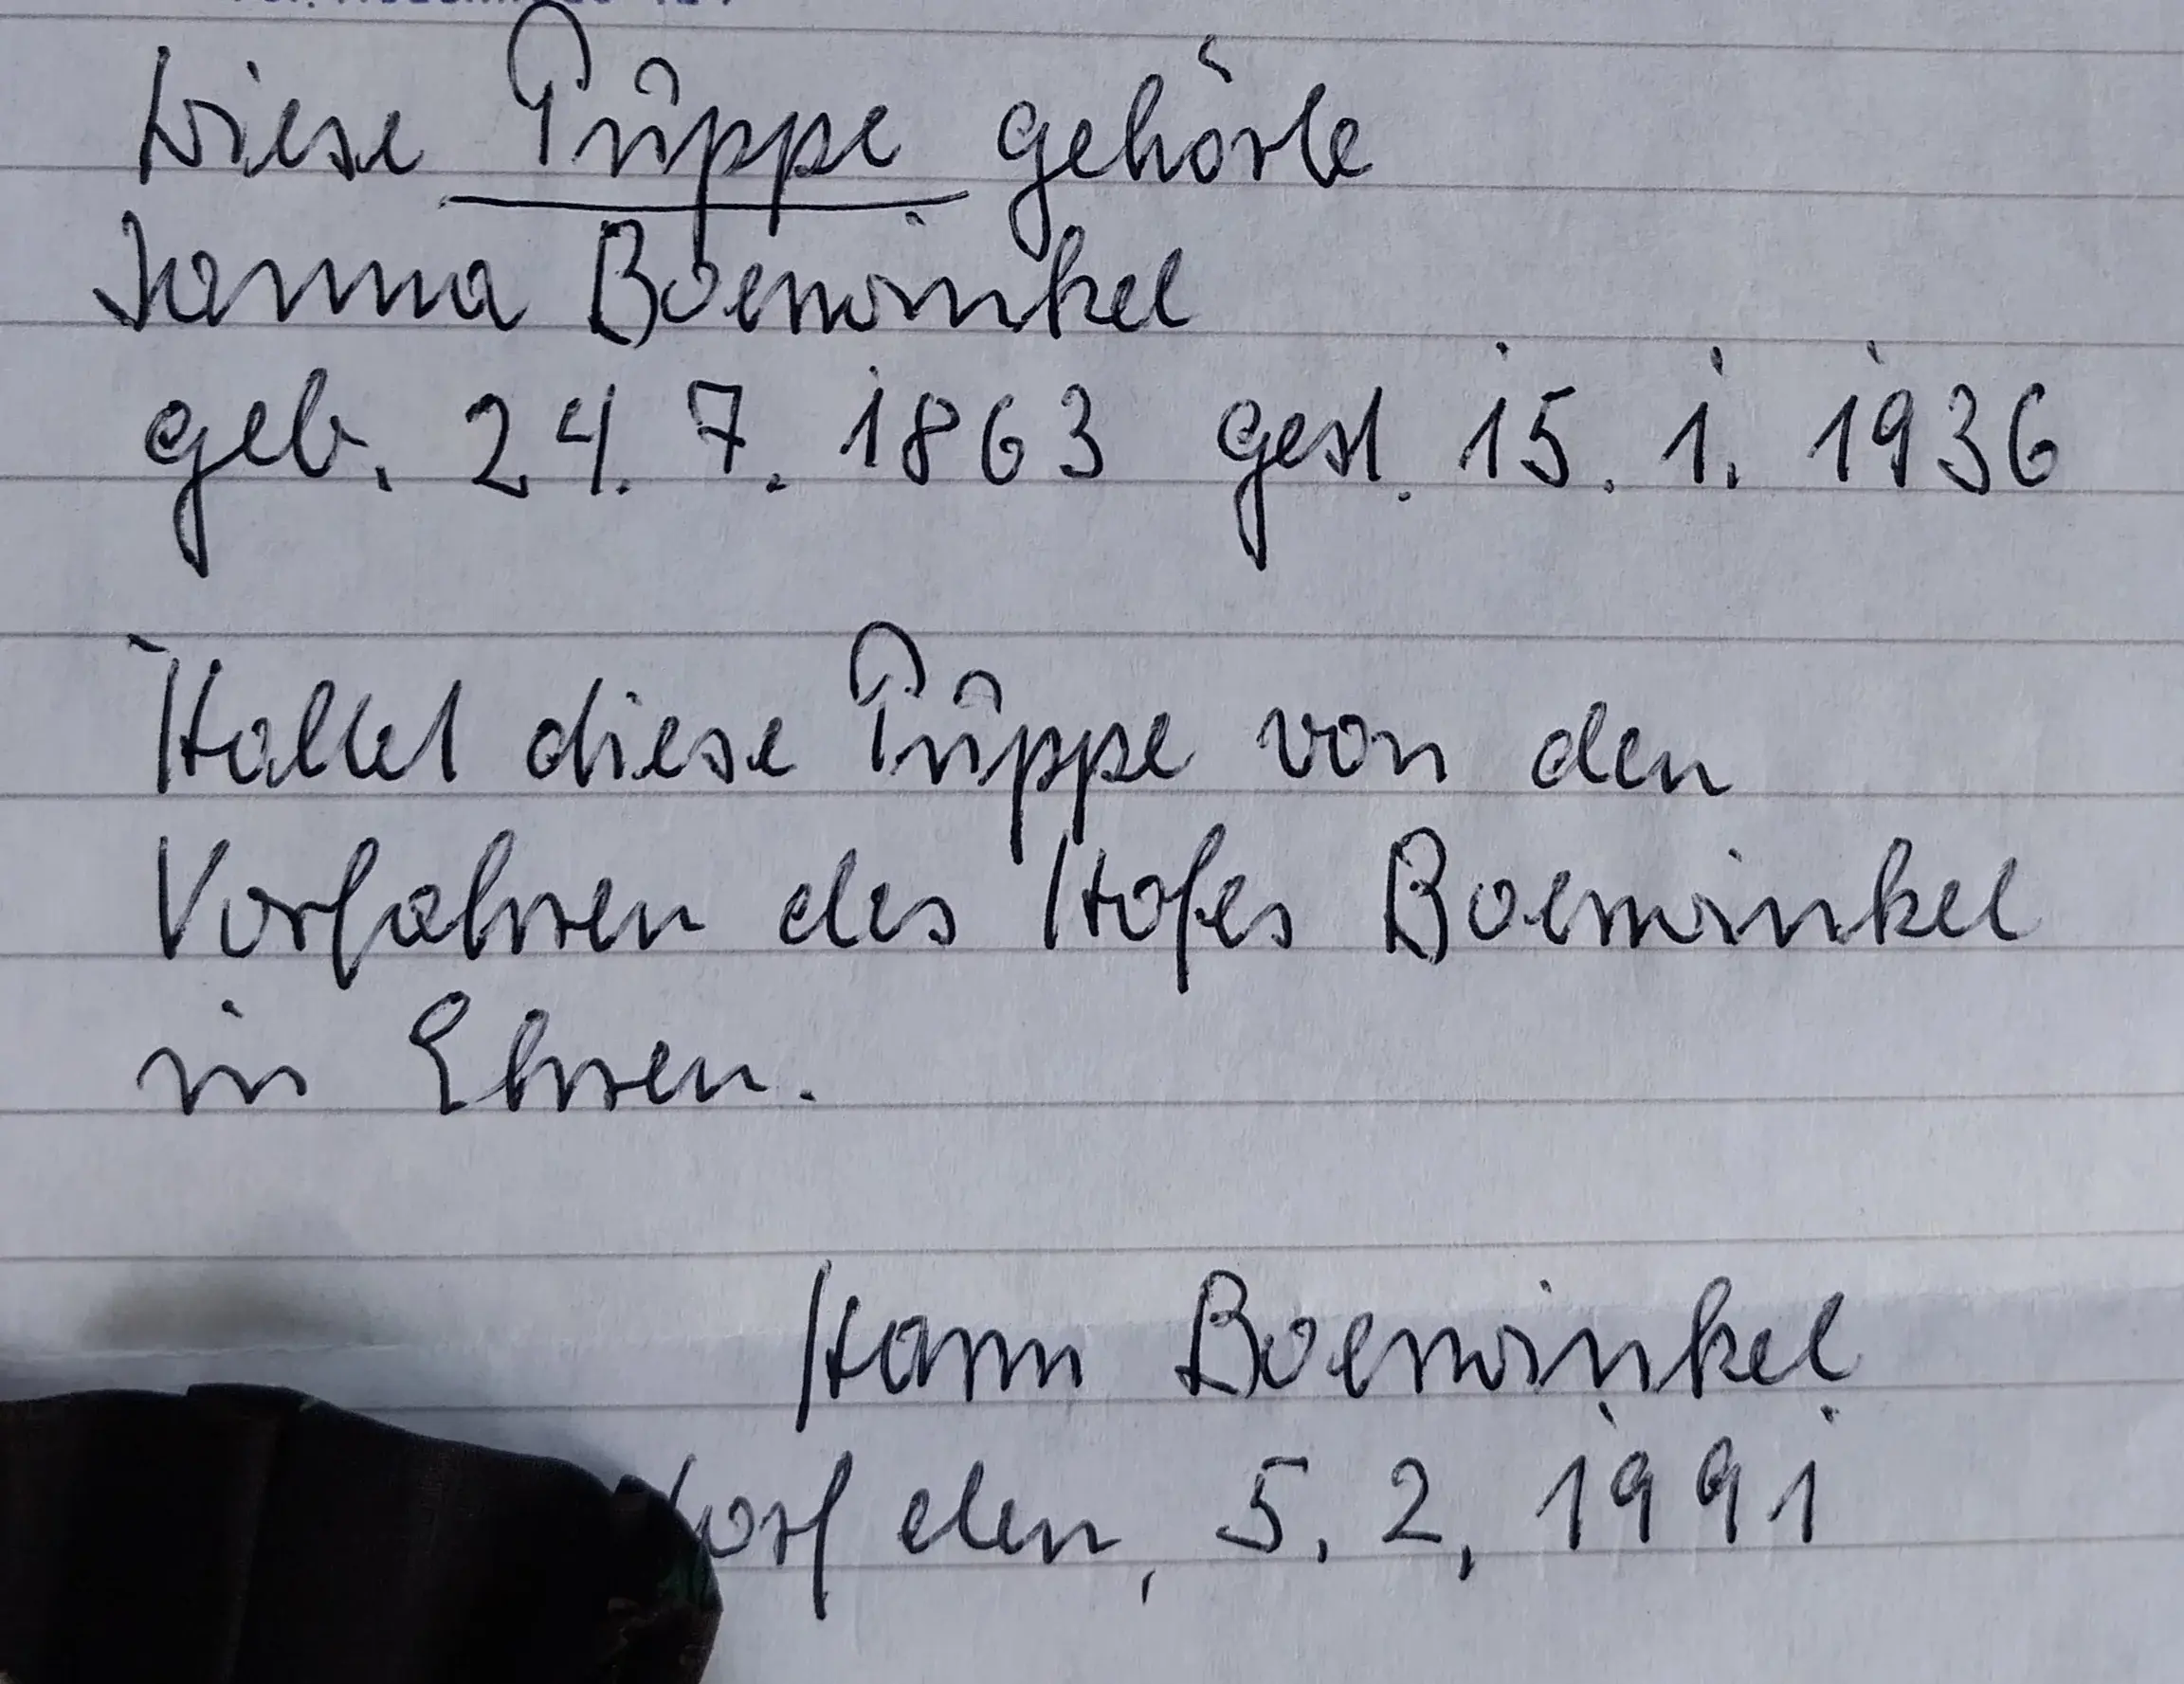 Diese Puppe gehörte
Janna Boerwinkel
geb. 24. 7. 1863 gest. 15. 1. 1936
Haltet diese Puppe von den
Vorfahren des Hofes Boerwinkel
in Ehren.
Harm Boerwinkel
den, 5. 2. 1991